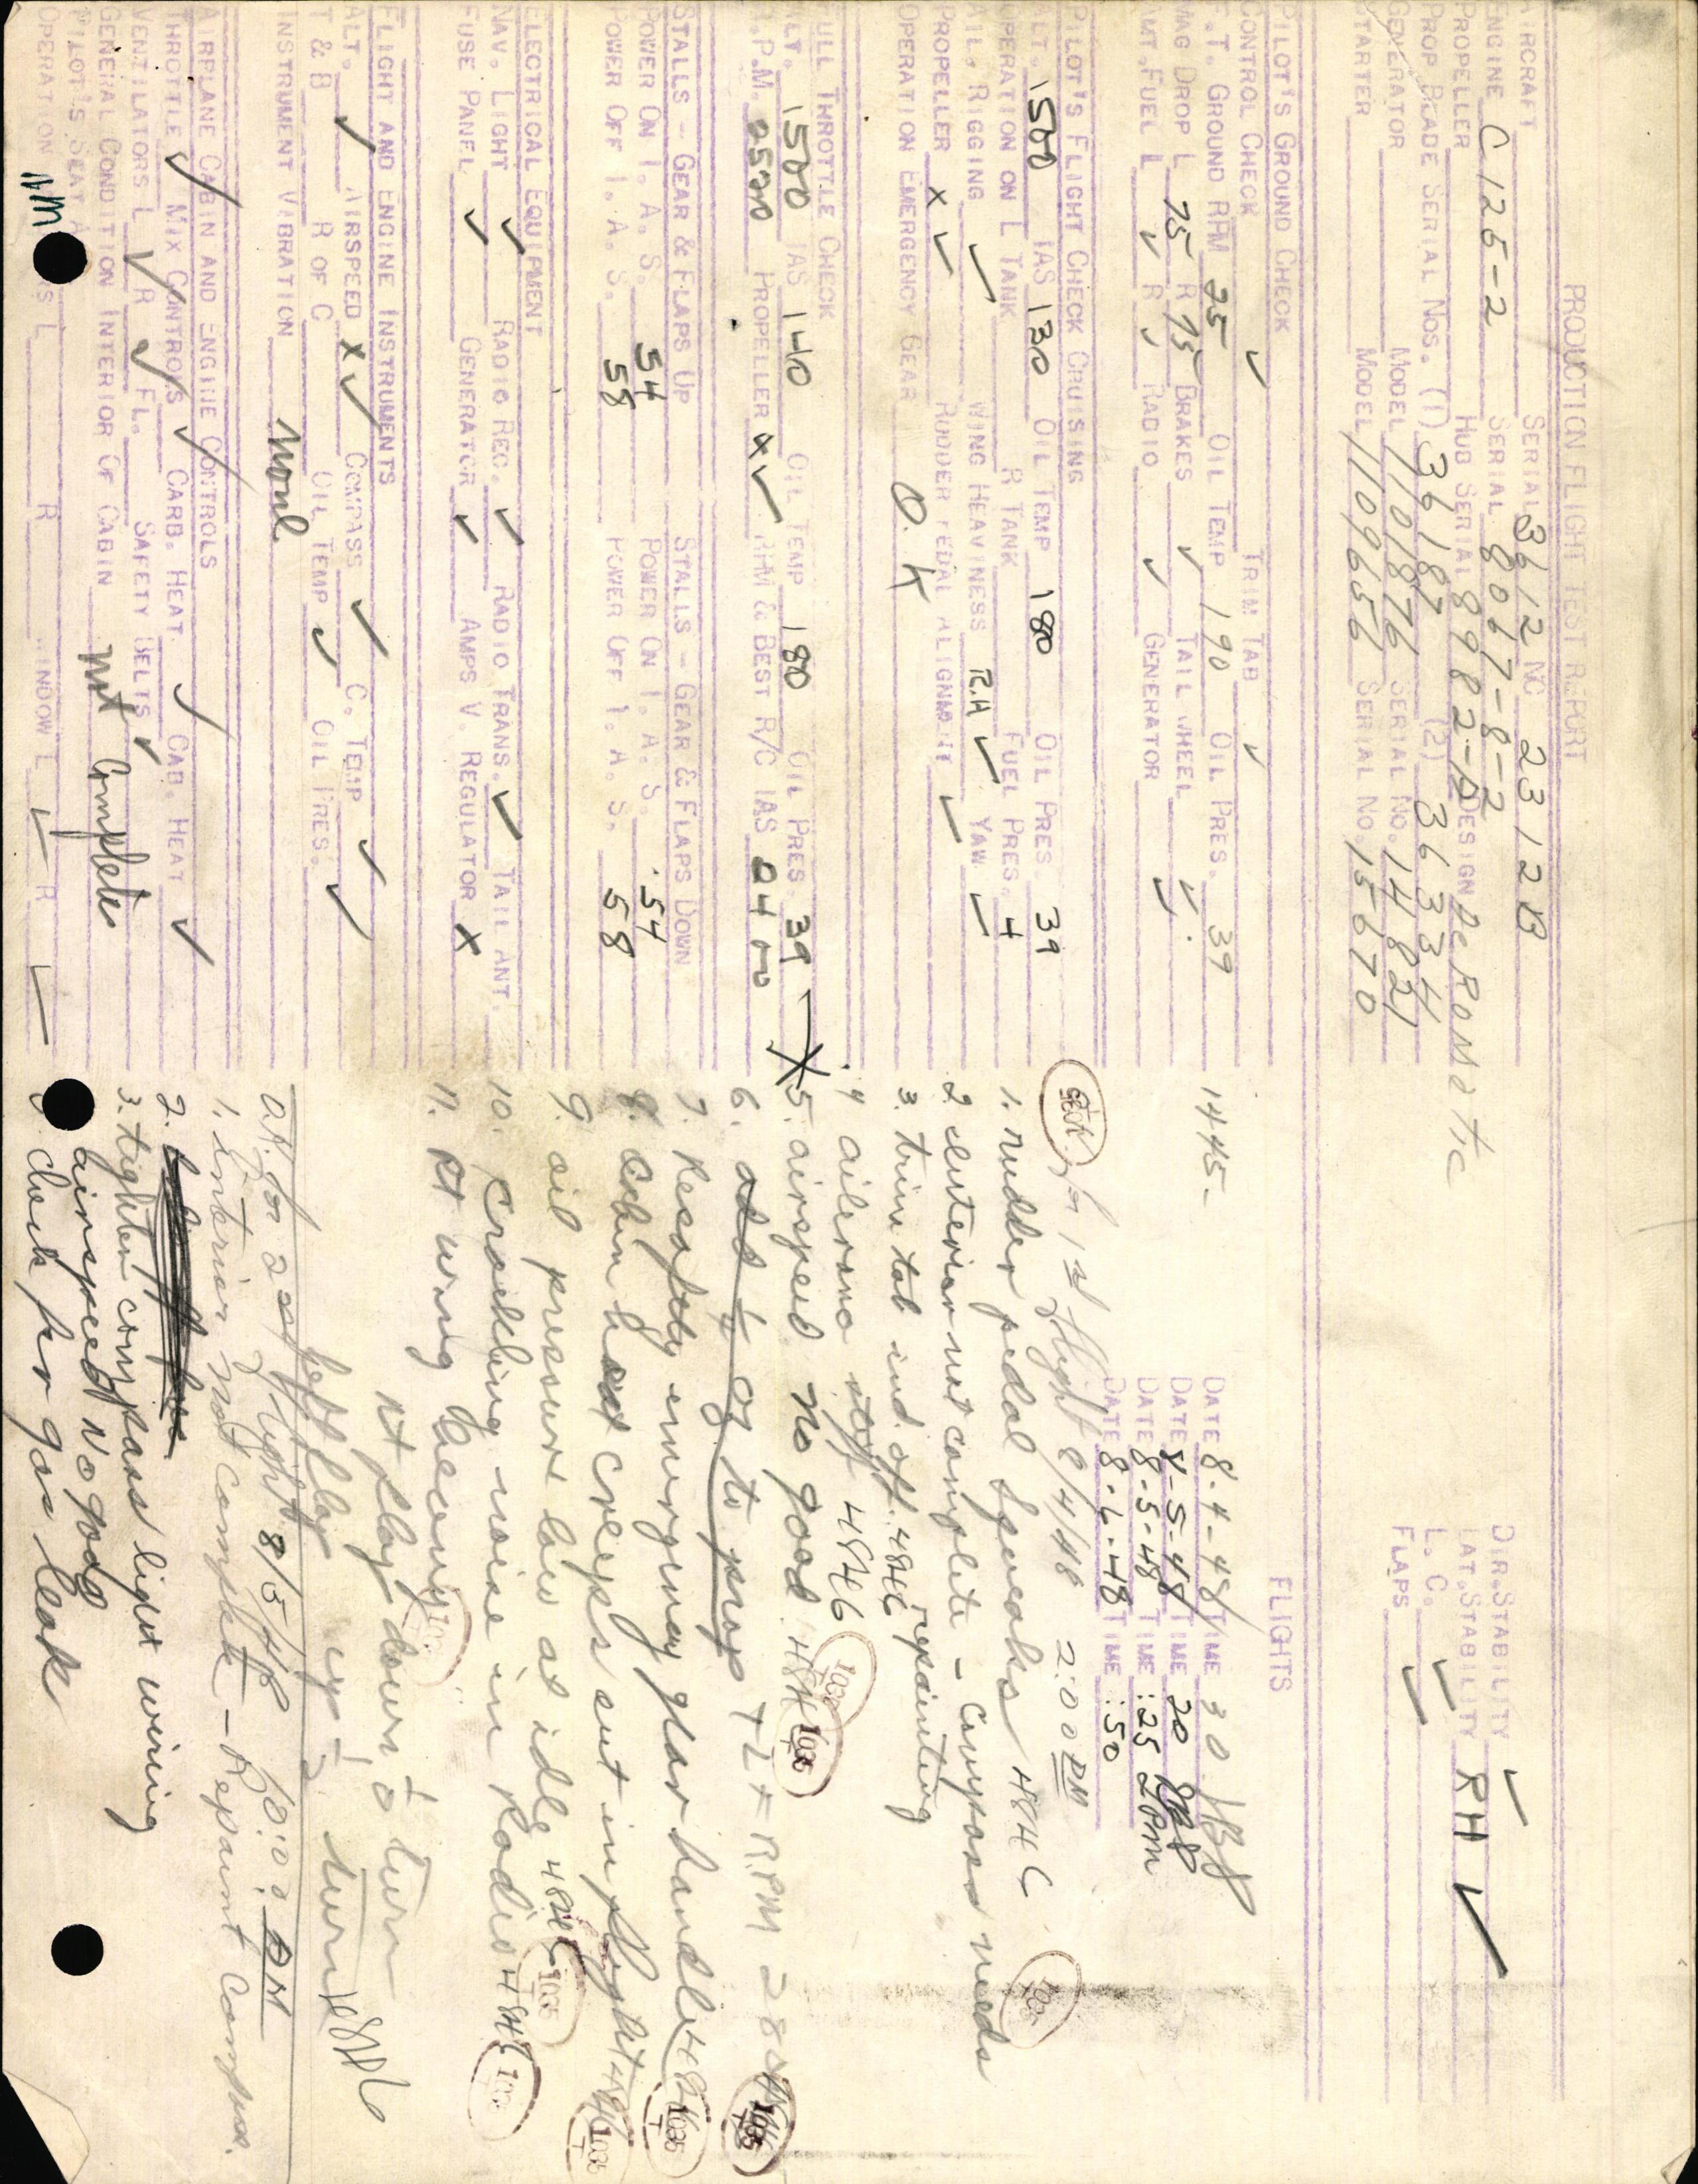 PRODUCTION FLIGHT TEST REPORT
AIRCRAFT SERIAL 3612 NC 2312B
ENGINE C 125-2 SERIAL 8067-8-2
PROPELLER HUB SERIAL 8982-A DESIGN
PROP BLADE SERIAL NOS. (1) 36187 (2) 36334
GENERATOR MODEL 1101876 SERIAL NO. 14821
STARTER MODEL 1109656 SERIAL NO. 15670
DIR. STABILITY ✓
LAT. STABILITY RH ✓
L. C. ✓
FLAPS ✓
PILOT'S GROUND CHECK
CONTROL CHECK ✓ TRIM TAB ✓
F.T. GROUND RPM 25 OIL TEMP 190 OIL PRES. 39
MAG DROP L 75 R 75 BRAKES ✓ TAIL WHEEL ✓
AMT. FUEL L ✓ R ✓ RADIO ✓ GENERATOR ✓
1445-
FLIGHTS
DATE 8-4-48 TIME 30
DATE 8-5-48 TIME 20
DATE 8-5-48 TIME :25 2PM
DATE 8-6-48 TIME :50
PILOT'S FLIGHT CHECK CRUISING
ALT. 1500 IAS 130 OIL TEMP 180 OIL PRES. 39
OPERATION ON L TANK R TANK FUEL PRES. 4
AIL. RIGGING ✓ WING HEAVINESS R.H ✓ YAW ✓
PROPELLER X ✓ RUDDER PEDAL ALIGNMENT ✓
OPERATION EMERGENCY GEAR O.K
FULL THROTTLE CHECK
ALT. 1500 IAS 140 OIL TEMP 180 OIL PRES. 39
R.P.M. 2500 PROPELLER X ✓ RPM & BEST R/C IAS 2400
STALLS - GEAR & FLAPS UP STALLS - GEAR & FLAPS DOWN
POWER ON I. A. S. 54 POWER ON I. A. S. 54
POWER OFF I. A. S. 58 POWER OFF I. A. S. 58
ELECTRICAL EQUIPMENT
NAV. LIGHT ✓ RADIO REC. ✓ RADIO TRANS. ✓ TAIL ANT.
FUSE PANEL ✓ GENERATOR ✓ AMPS V. REGULATOR X
FLIGHT AND ENGINE INSTRUMENTS
ALT. ✓ AIRSPEED X ✓ COMPASS ✓ C. TEMP ✓
T & B R OF C OIL TEMP ✓ OIL PRES. ✓
INSTRUMENT VIBRATION None
AIRPLANE CABIN AND ENGINE CONTROLS
THROTTLE ✓ MIX CONTROLS ✓ CARB. HEAT ✓ CAB. HEAT ✓
VENTILATORS L ✓ R ✓ FL. SAFETY BELTS ✓
GENERAL CONDITION INTERIOR OF CABIN Not Complete
PILOT'S SEAT
OPERATION L R WINDOW L ✓ R ✓
for 1st flight 8/4/48 2:00 PM
1. rudder pedal squeaks
2. interior not complete - Compass needs
repainting
3. trim tab ind. off.
4 ailerons stiff
5. airspeed no good
6. add ½ oz to prop
7. Resafety emergency gear handle
8. Cabin heat creeps out in flight
9. oil pressure low at idle
10. Crackling noise in Radio
11. Rt wing heavy
rt flap down ½ turn
left flap up ½ turn
O.K. for 2nd flight 8/5/48 10:00 AM
1. interior not complete - Repaint Compass.
2.
3. tighten compass light wiring
airspeed No good
check for gas leak